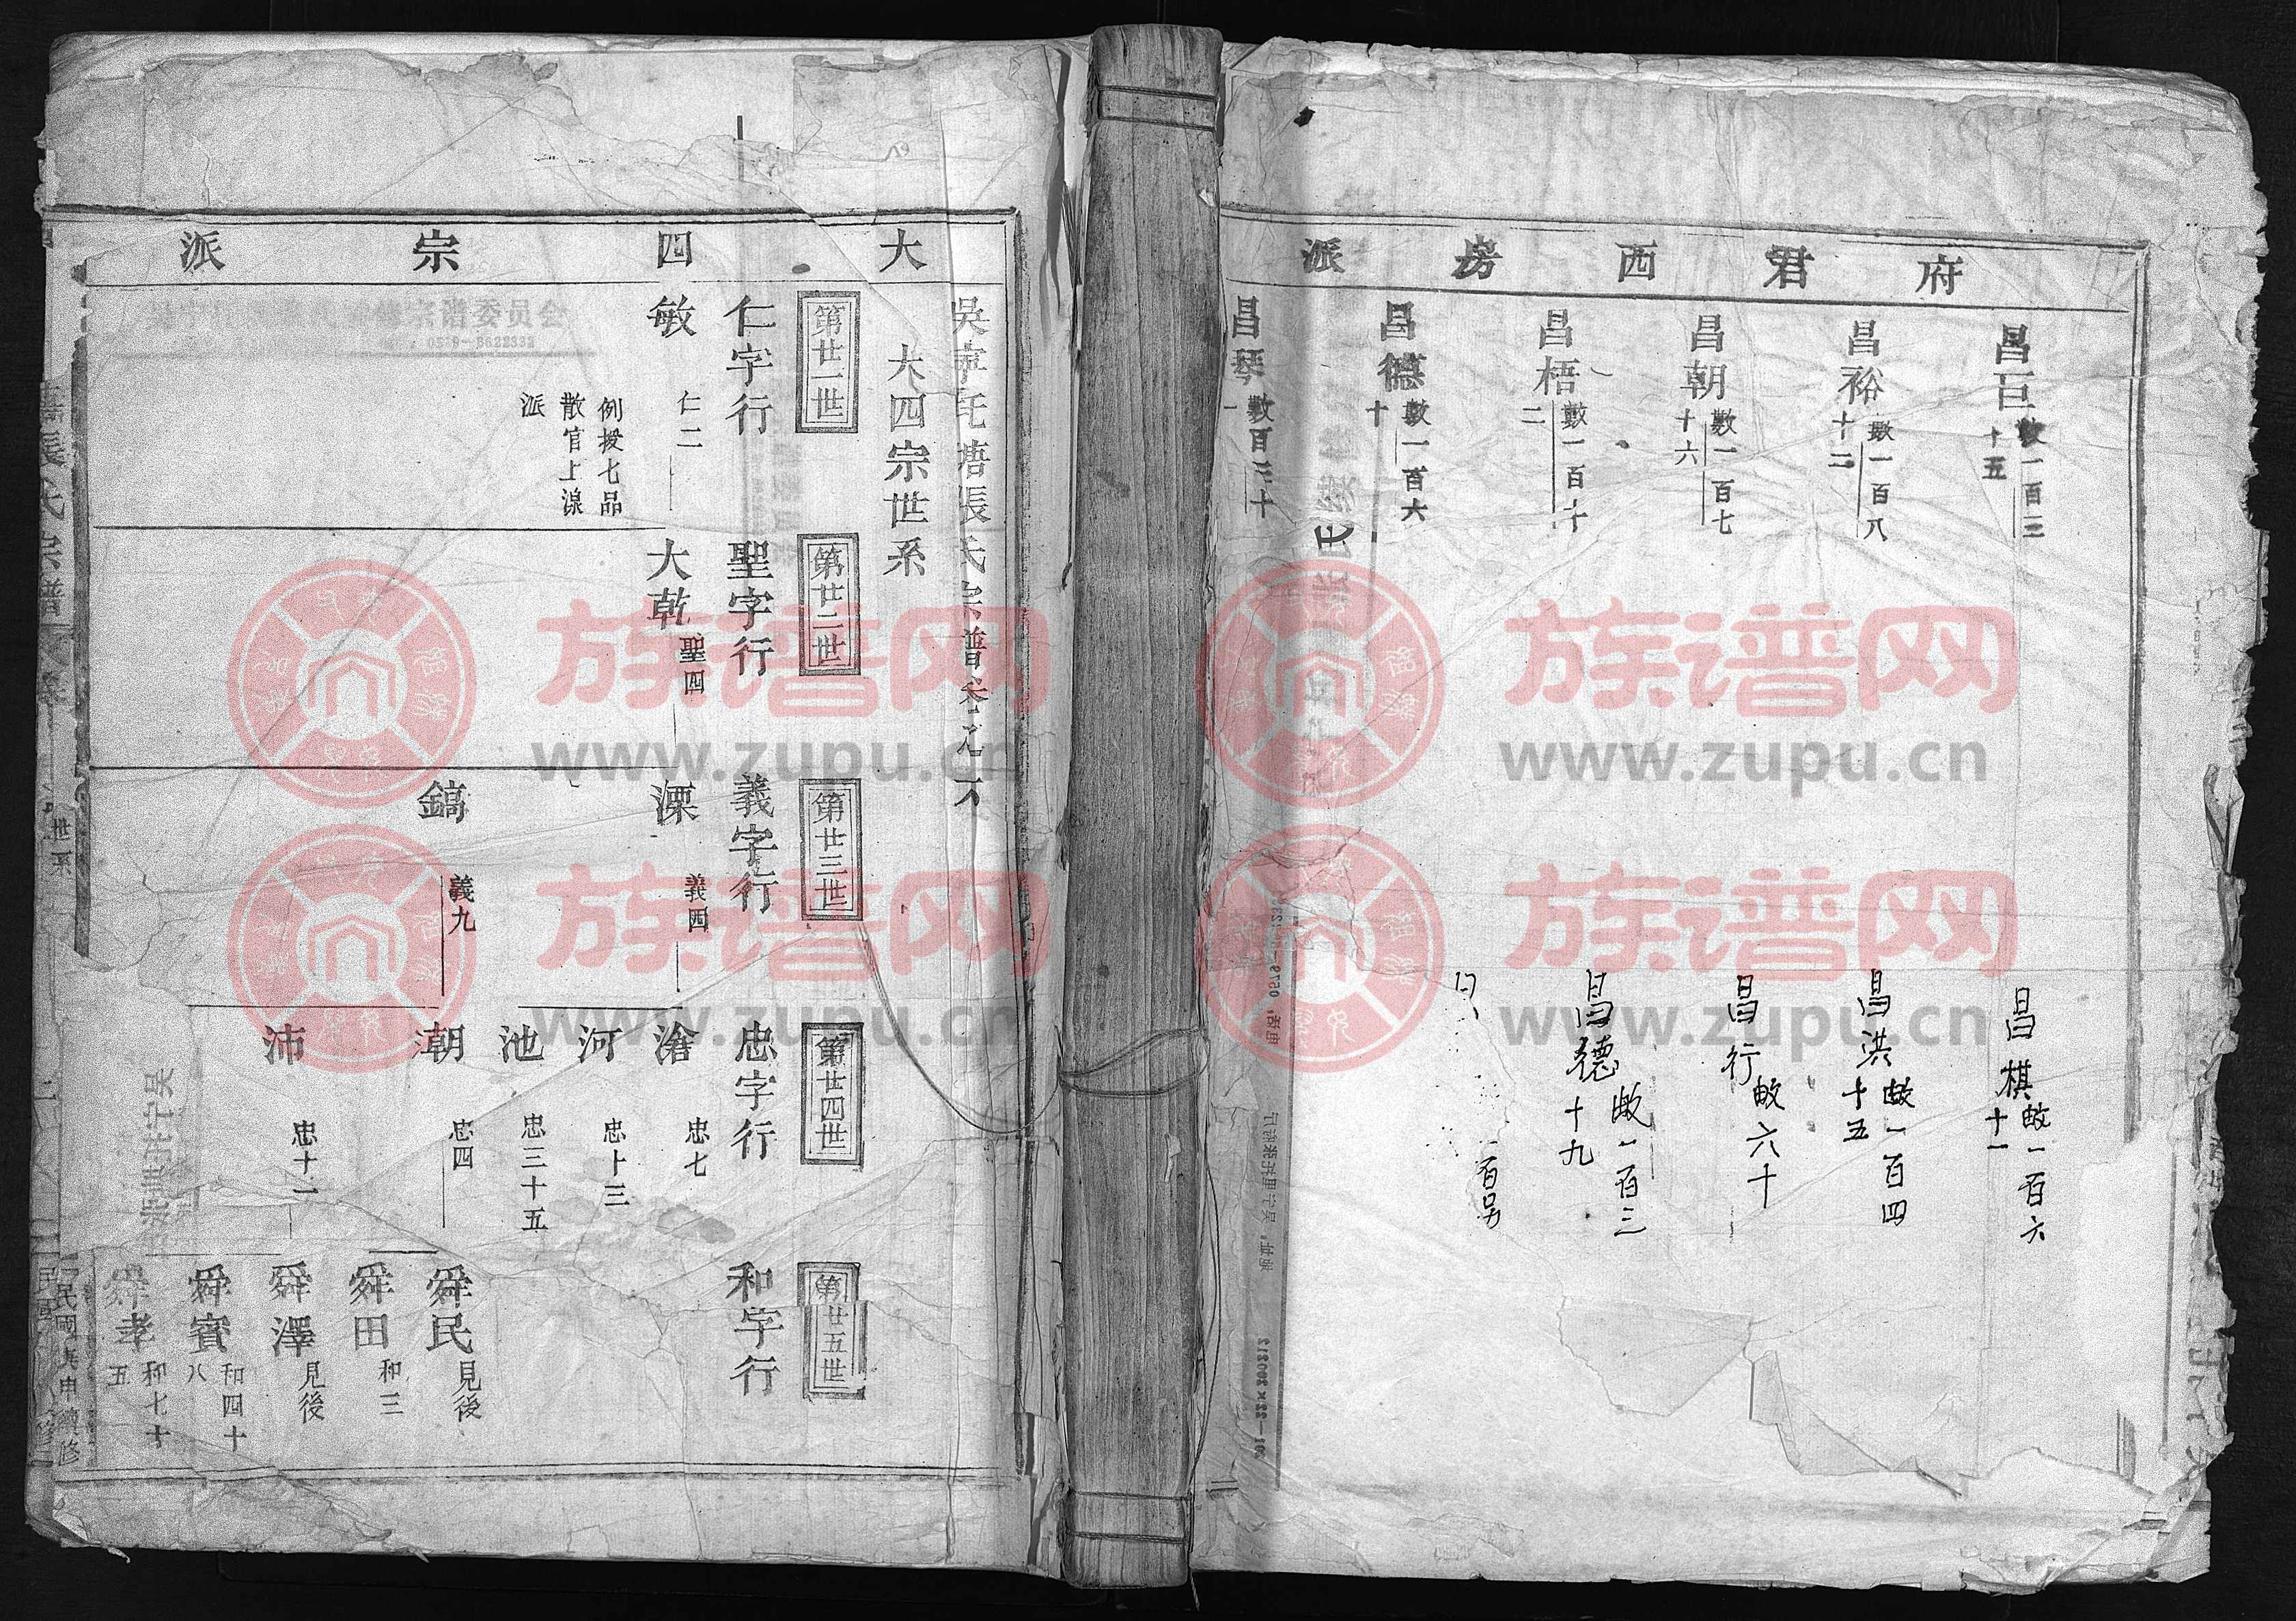 府君西房派
昌巨
十五
昌裕 數一百八
十二
昌朝 數一百七
十六
昌梧 數一百十
二
昌德 數一百六
十
昌琴 數百三十
一
昌棋 一百六
十一
昌洪 一百四
十五
昌行 六十
昌德 一百三
十九
大四宗派
大四宗世系
第廿一世
仁字行
敏 仁二
例授七品
散官上
派
第廿二世
聖字行
大乾 聖四
第廿三世
義字行
溧 義四
鎬 義九
第廿四世
忠字行
滄 忠七
河 忠十三
池 忠三十五
潮 忠四
沛 忠十一
第廿五世
和字行
舜民 見後
舜田 和三
舜澤 見後
舜賓 和四十
八
舜孝 和七十
五
氏宗譜
世系
族谱网
www.zupu.cn
族谱网
www.zupu.cn
族谱网
www.zupu.cn
族谱网
www.zupu.cn